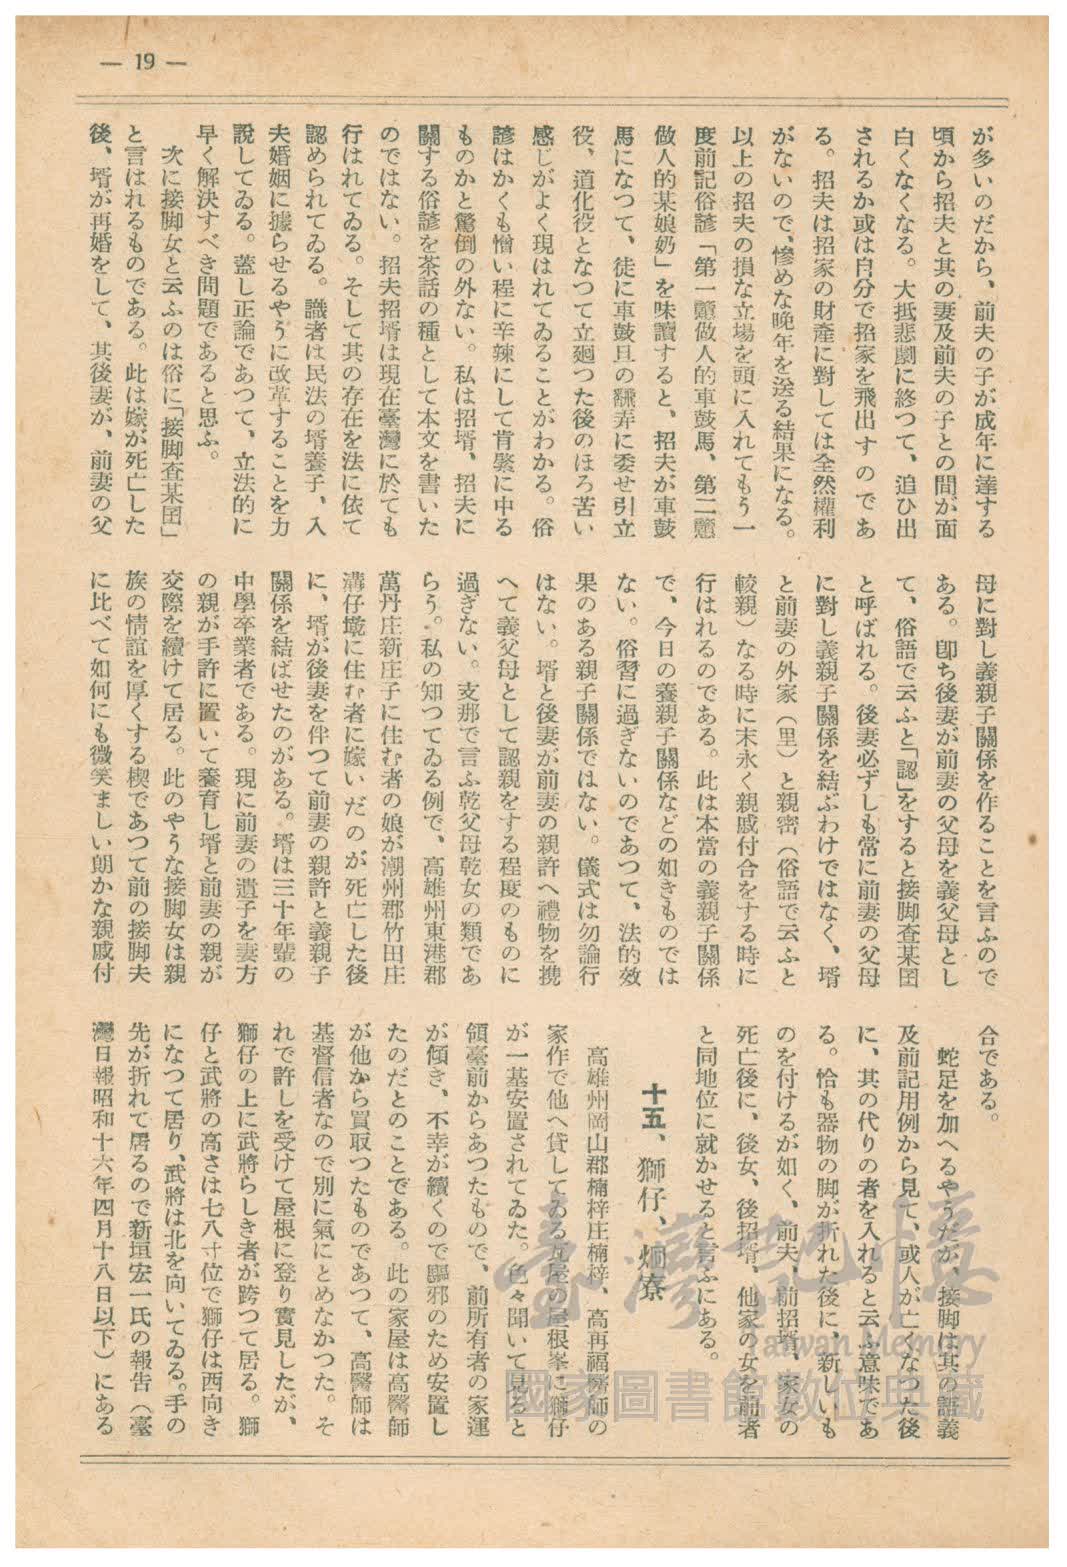 — 19 —
が多いのだから、前夫の子が成年に達する
頃から招夫と其の妻及前夫の子との間が面
白くなくなる。大抵悲劇に終つて、追ひ出
されるか或は自分で招家を飛出すのであ
る。招夫は招家の財產に對しては全然權利
がないので、慘めな晚年を送る結果になる。
以上の招夫の損な立場を頭に入れてもう一
度前記俗諺「第一戇做人的車鼓馬、第二戇
做人的某娘奶」を味讀すると、招夫が車鼓
馬になつて、徒に車鼓旦の飜弄に委せ引立
役、道化役となつて立廻つた後のほろ苦い
感じがよく現はれてゐることがわかる。俗
諺はかくも憎い程に辛辣にして肯綮に中る
ものかと驚倒の外ない。私は招壻、招夫に
關する俗諺を茶話の種として本文を書いた
のではない。招夫招壻は現在臺灣に於ても
行はれてゐる。そして其の存在を法に依て
認められてゐる。識者は民法の壻養子、入
夫婚姻に據らせるやうに改革することを力
說してゐる。蓋し正論であつて、立法的に
早く解決すべき問題であると思ふ。
次に接脚女と云ふのは俗に「接脚査某囝」
と言はれるものである。此は嫁が死亡した
後、壻が再婚をして、其後妻が、前妻の父
母に對し義親子關係を作ることを言ふので
ある。卽ち後妻が前妻の父母を義父母とし
て、俗語で云ふと「認」をすると接脚査某囝
と呼ばれる。後妻必ずしも常に前妻の父母
に對し義親子關係を結ぶわけではなく、壻
と前妻の外家（里）と親密（俗語で云ふと
較親）なる時に末永く親戚付合をする時に
行はれるのである。此は本當の義親子關係
で、今日の養親子關係などの如きものでは
ない。俗習に過ぎないのであつて、法的效
果のある親子關係ではない。儀式は勿論行
はない。壻と後妻が前妻の親許へ禮物を携
へて義父母として認親をする程度のものに
過ぎない。支那で言ふ乾父母乾女の類であ
らう。私の知つてゐる例で、高雄州東港郡
萬丹庄新庄子に住む者の娘が潮州郡竹田庄
溝仔墘に住む者に嫁いだのが死亡した後
に、壻が後妻を伴つて前妻の親許と義親子
關係を結ばせたのがある。壻は三十年輩の
中學卒業者である。現に前妻の遺子を妻方
の親が手許に置いて養育し壻と前妻の親が
交際を續けて居る。此のやうな接脚女は親
族の情誼を厚くする楔であつて前の接脚夫
に比べて如何にも微笑ましい朗かな親戚付
合である。
蛇足を加へるやうだが、接脚は其の語義
及前記用例から見て、或人が亡くなつた後
に、其の代りの者を入れると云ふ意味であ
る。恰も器物の脚が折れた後に、新しいも
のを付けるが如く、前夫、前招壻、家女の
死亡後に、後女、後招壻、他家の女を前者
と同地位に就かせると言ふにある。
十五、獅仔、烱寮
高雄州岡山郡楠梓庄楠梓、高再福醫師の
家作で他へ貸してゐる瓦屋の屋根峯に獅仔
が一基安置されてゐた。色々聞いて見ると
領臺前からあつたもので、前所有者の家運
が傾き、不幸が續くので驅邪のため安置し
たのだとのことである。此の家屋は高醫師
が他から買取つたものであつて、高醫師は
基督信者なので別に氣にとめなかつた。そ
れで許しを受けて屋根に登り實見したが、
獅仔の上に武將らしき者が跨つて居る。獅
仔と武將の高さは七八寸位で獅仔は西向き
になつて居り、武將は北を向いてゐる。手の
先が折れて居るので新垣宏一氏の報告（臺
灣日報昭和十六年四月十八日以下）にある
臺灣記憶
Taiwan Memory
國家圖書館數位典藏